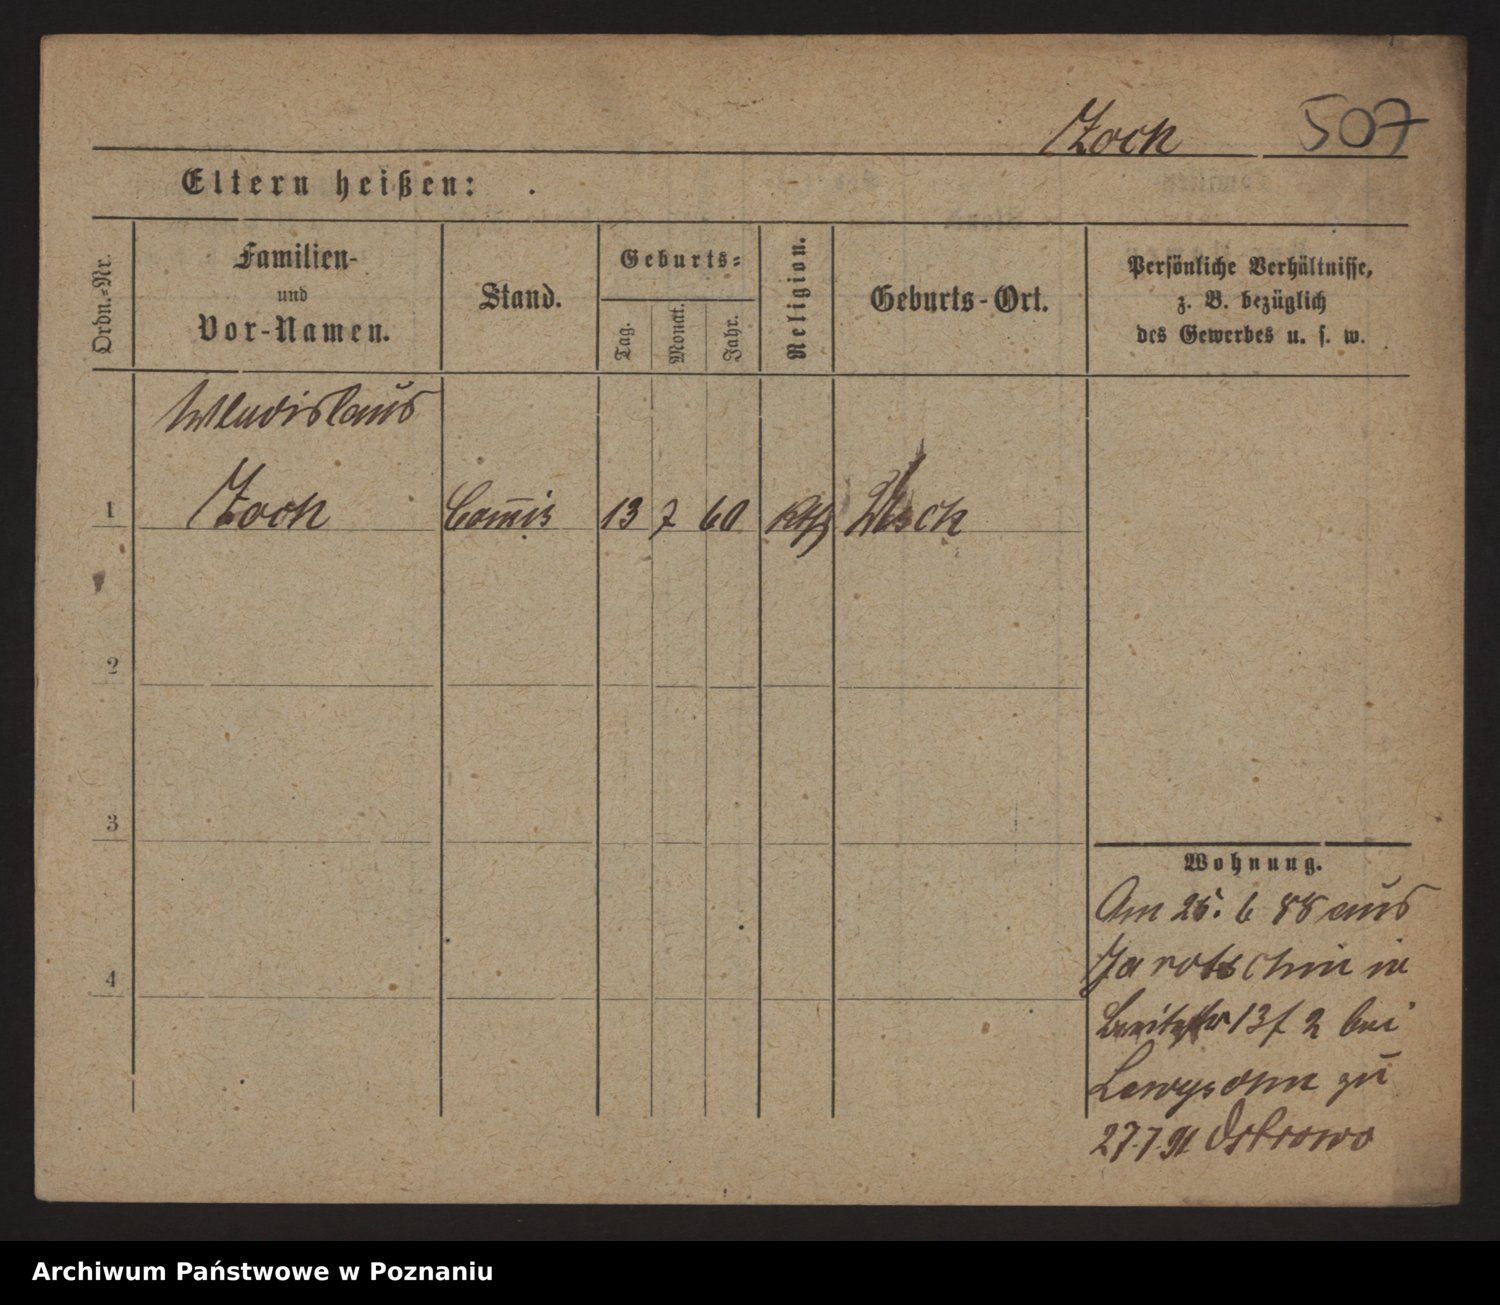 Zoch 507
Eltern heißen:
Ordn.-Nr.
Familien-
und
Vor-Namen.
Stand.
Geburts-
Tag.
Monat.
Jahr.
Religion.
Geburts-Ort.
Persönliche Verhältnisse,
z. B. bezüglich
des Gewerbes u. s. w.
Wladislaus
1 Zoch Com̅is 13 7 60 kth
2
3
4
Wohnung.
Am 25. 6 88 aus
Jarotschin in
13 f 2 bei
Lewysohn zu
27.7.91 Ostrowo
Archiwum Państwowe w Poznaniu